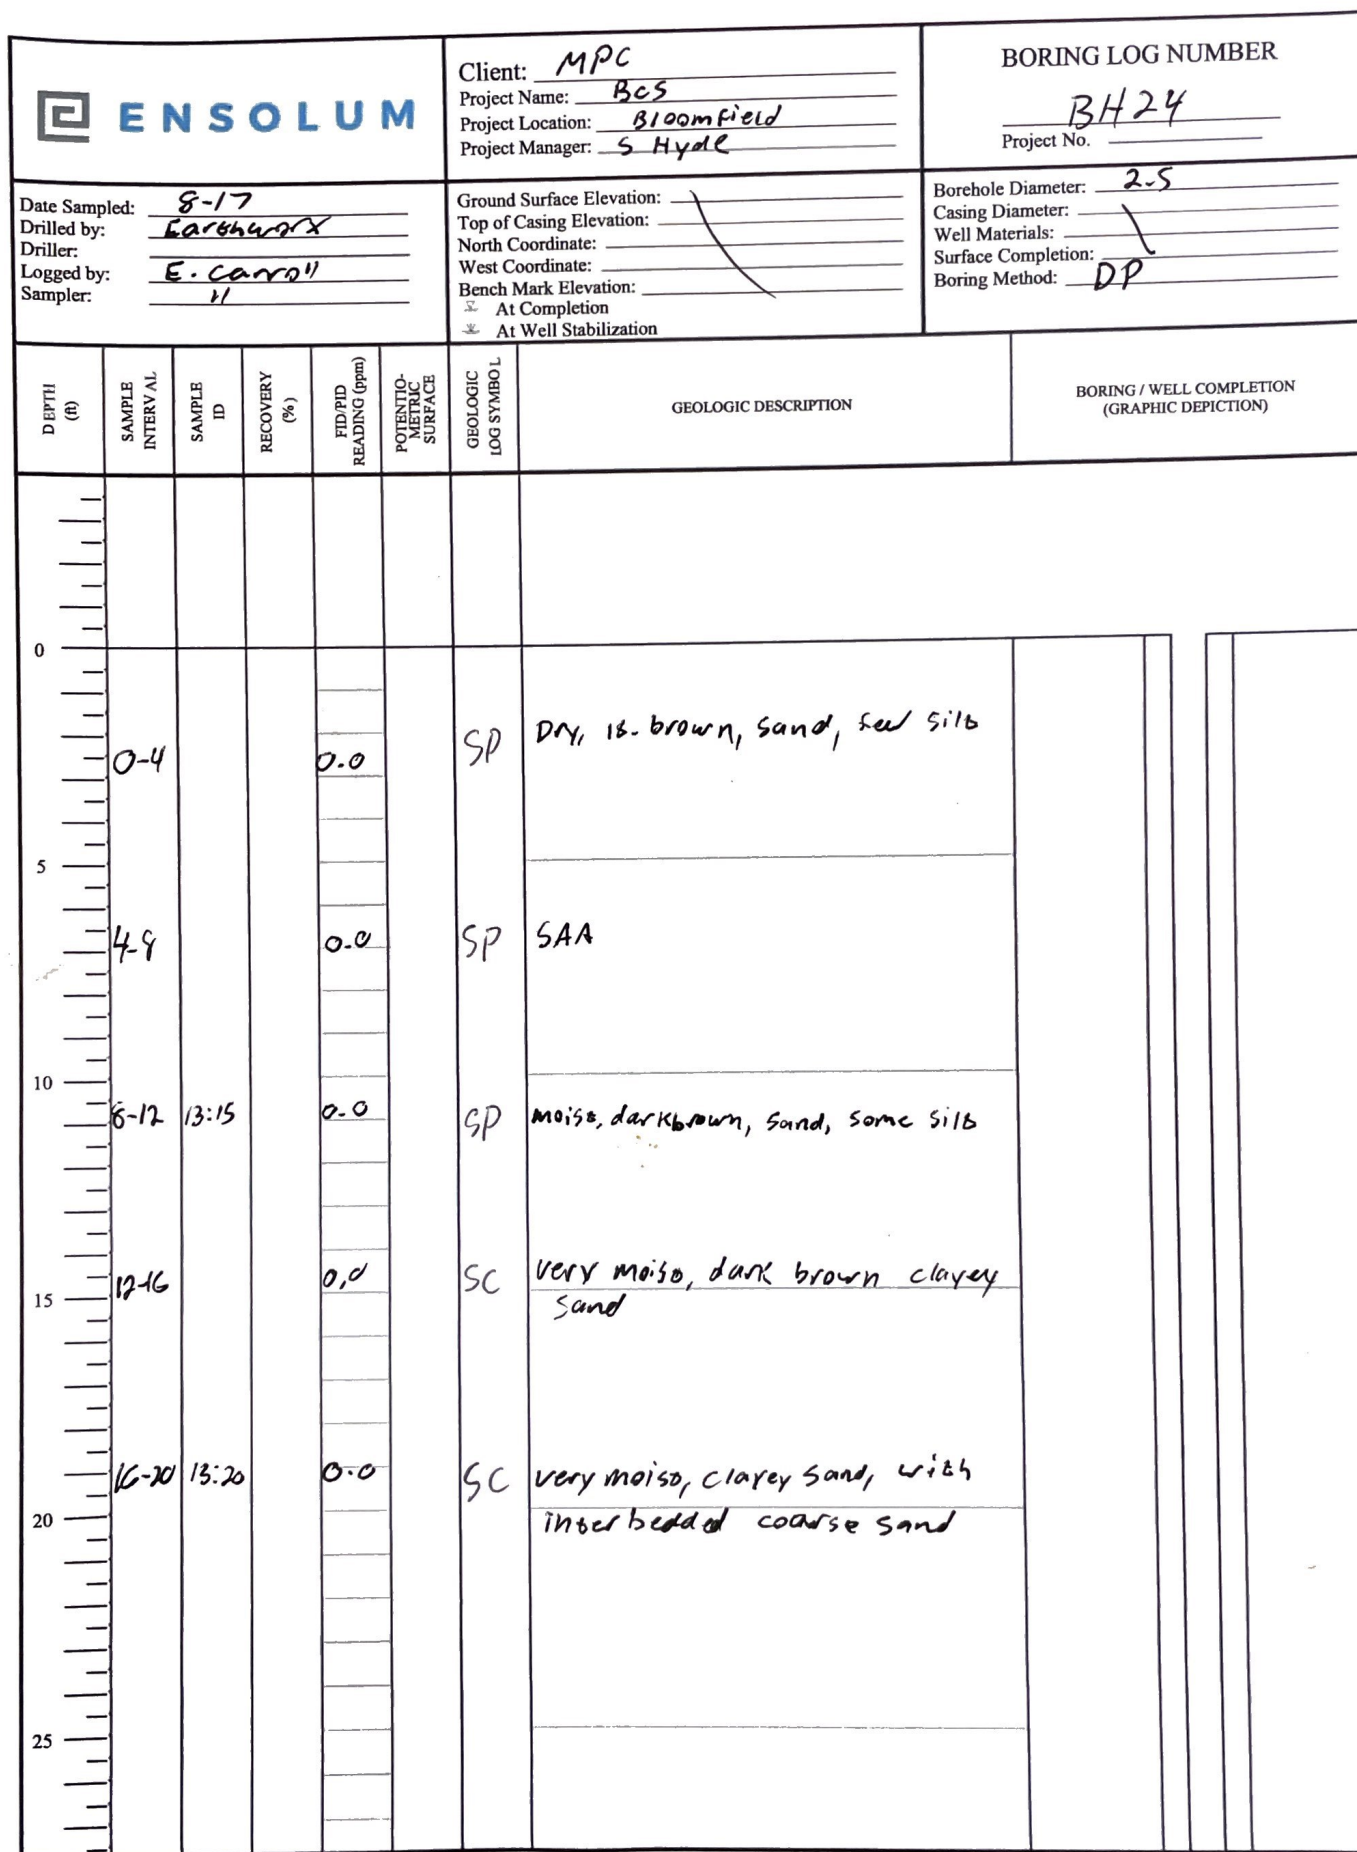 ENSOLUM
Client: MPC
Project Name: BCS
Project Location: Bloomfield
Project Manager: S Hyde
BORING LOG NUMBER
BH24
Project No.
Date Sampled: 8-17
Drilled by: Earthworx
Driller:
Logged by: E. Carroll
Sampler: "
Ground Surface Elevation:
Top of Casing Elevation:
North Coordinate:
West Coordinate:
Bench Mark Elevation:
At Completion
At Well Stabilization
Borehole Diameter: 2.5
Casing Diameter:
Well Materials:
Surface Completion:
Boring Method: DP
DEPTH (ft)
SAMPLE INTERVAL
SAMPLE ID
RECOVERY (%)
FID/PID READING (ppm)
POTENTIO-METRIC SURFACE
GEOLOGIC LOG SYMBOL
GEOLOGIC DESCRIPTION
BORING / WELL COMPLETION
(GRAPHIC DEPICTION)
0
0-4 0.0 SP Dry, lt. brown, sand, few silt
5
4-8 0.0 SP SAA
10
8-12 13:15 0.0 SP moist, dark brown, sand, some silt
12-16 0.0 SC very moist, dark brown clayey
15
sand
16-20 13:20 0.0 SC very moist, clayey sand, with
20
interbedded coarse sand
25